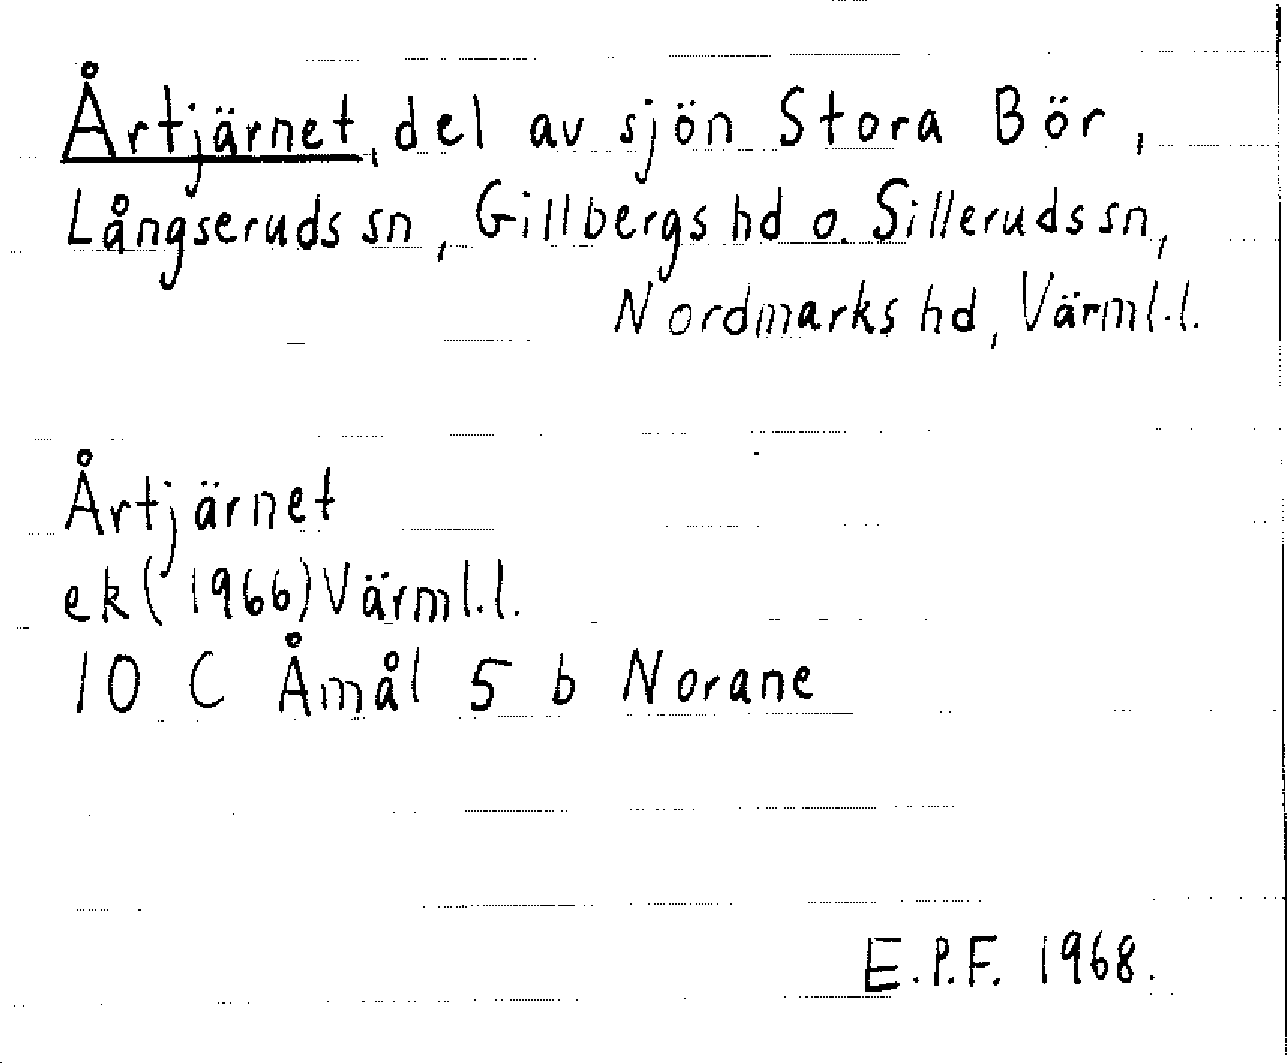 Årtjärnet, del av sjön Stora Bör,
Långseruds sn, Gillbergs hd o. Silleruds sn,
Nordmarks hd, Värml.l.
Årtjärnet
ek (1966) Värml.l.
10 C Åmål 5 b Norane
E.P.F. 1968.